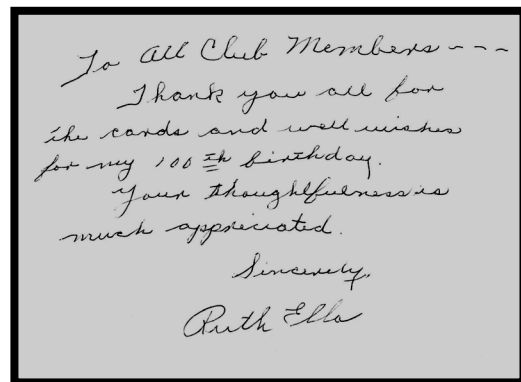 To All Club Members - - -
Thank you all for
the cards and well wishes
for my 100th birthday.
Your thoughtfulness is
much appreciated.
Sincerely,
Ruth Ella